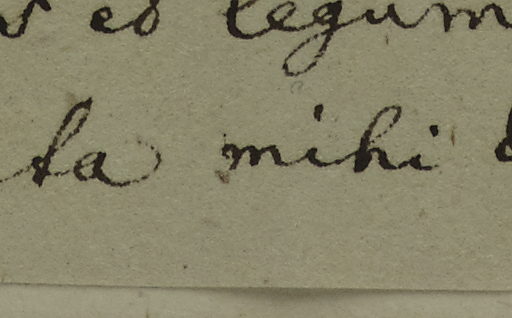 eo legum
ta mihi